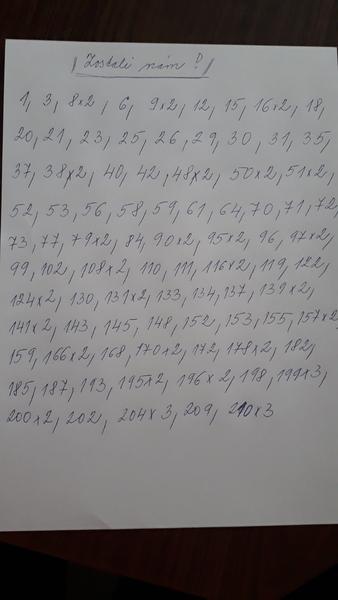 Zostali nám!
1, 3, 8x2, 6, 9x2, 12, 15, 16x2, 18,
20, 21, 23, 25, 26, 29, 30, 31, 35,
37, 38x2, 40, 42, 48x2, 50x2, 51x2,
52, 53, 56, 58, 59, 61, 64, 70, 71, 72,
73, 77, 79x2, 84, 90x2, 95x2, 96, 97x2,
99, 102, 108x2, 110, 111, 116x2, 119, 122,
124x2, 130, 131x2, 133, 134, 137, 139x2,
141x2, 143, 145, 148, 152, 153, 155, 157x2,
159, 166x2, 168, 170x2, 172, 178x2, 182,
185, 187, 193, 195x2, 196x2, 198, 199x3,
200x2, 202, 204x3, 209, 210x3